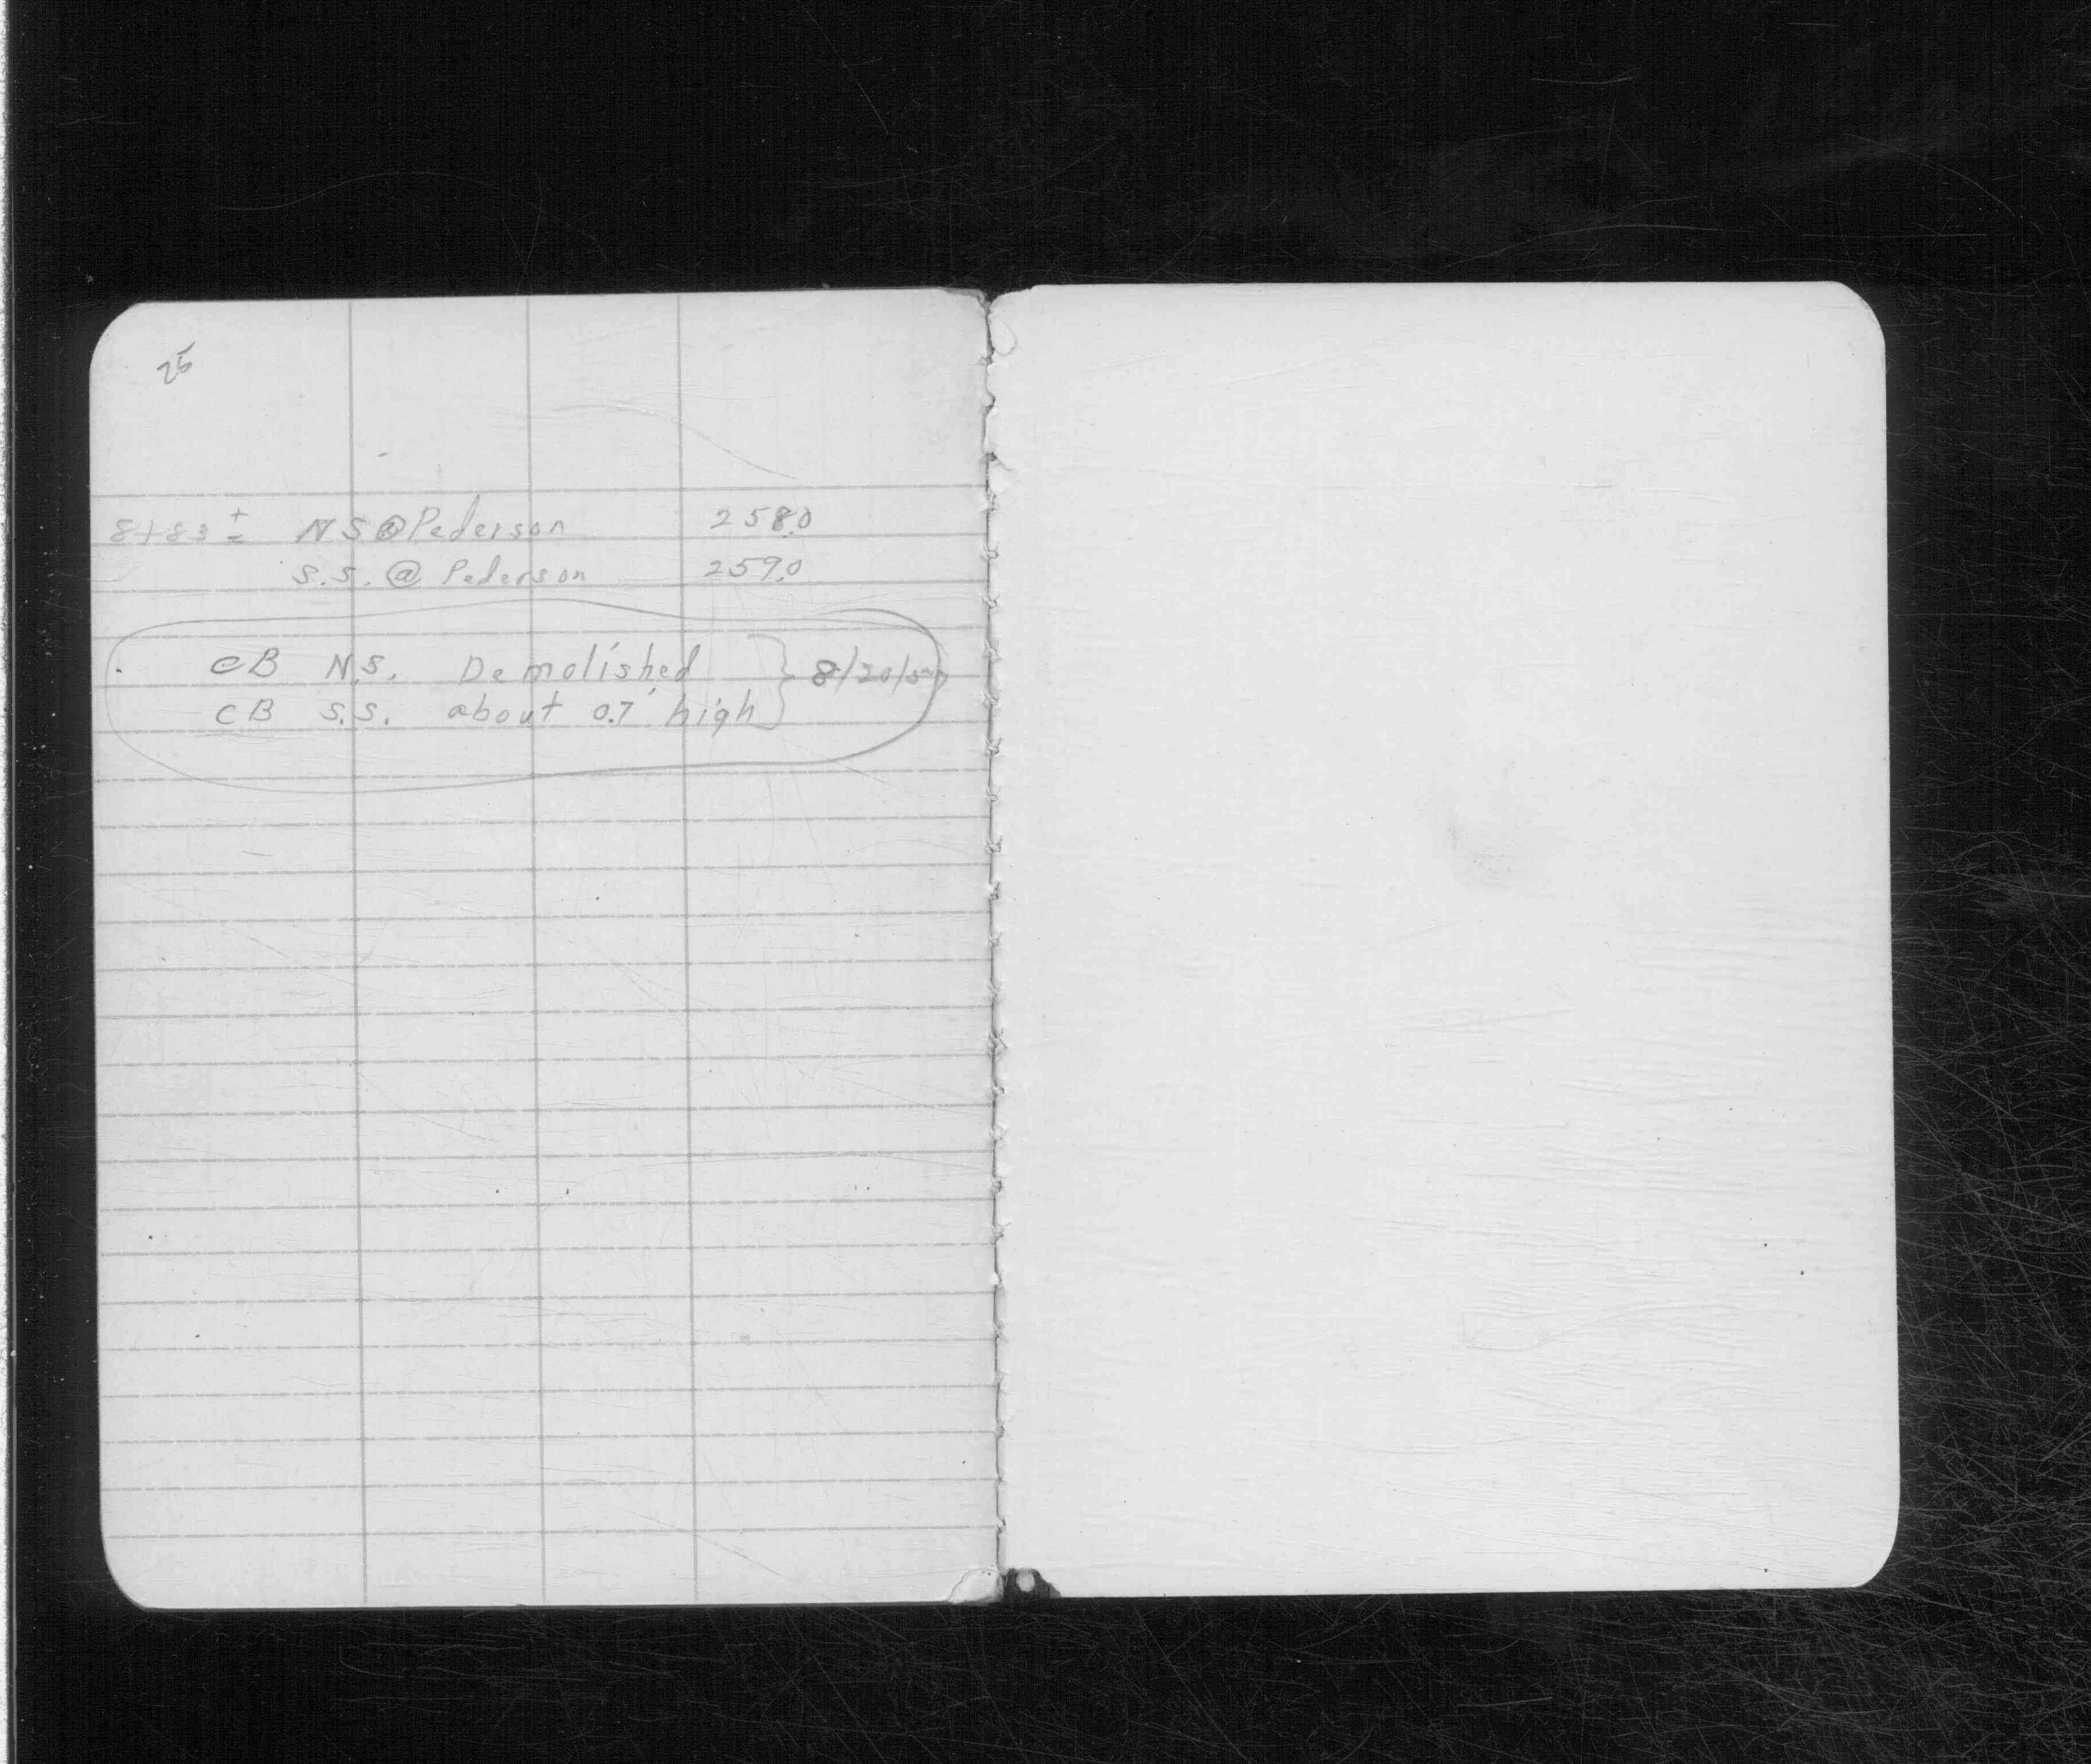 25
8+83 ± N S @ Pederson 258.0
S.S. @ Pederson 259.0
CB N.S. Demolished
CB S.S. about 0.7' high } 8/20/